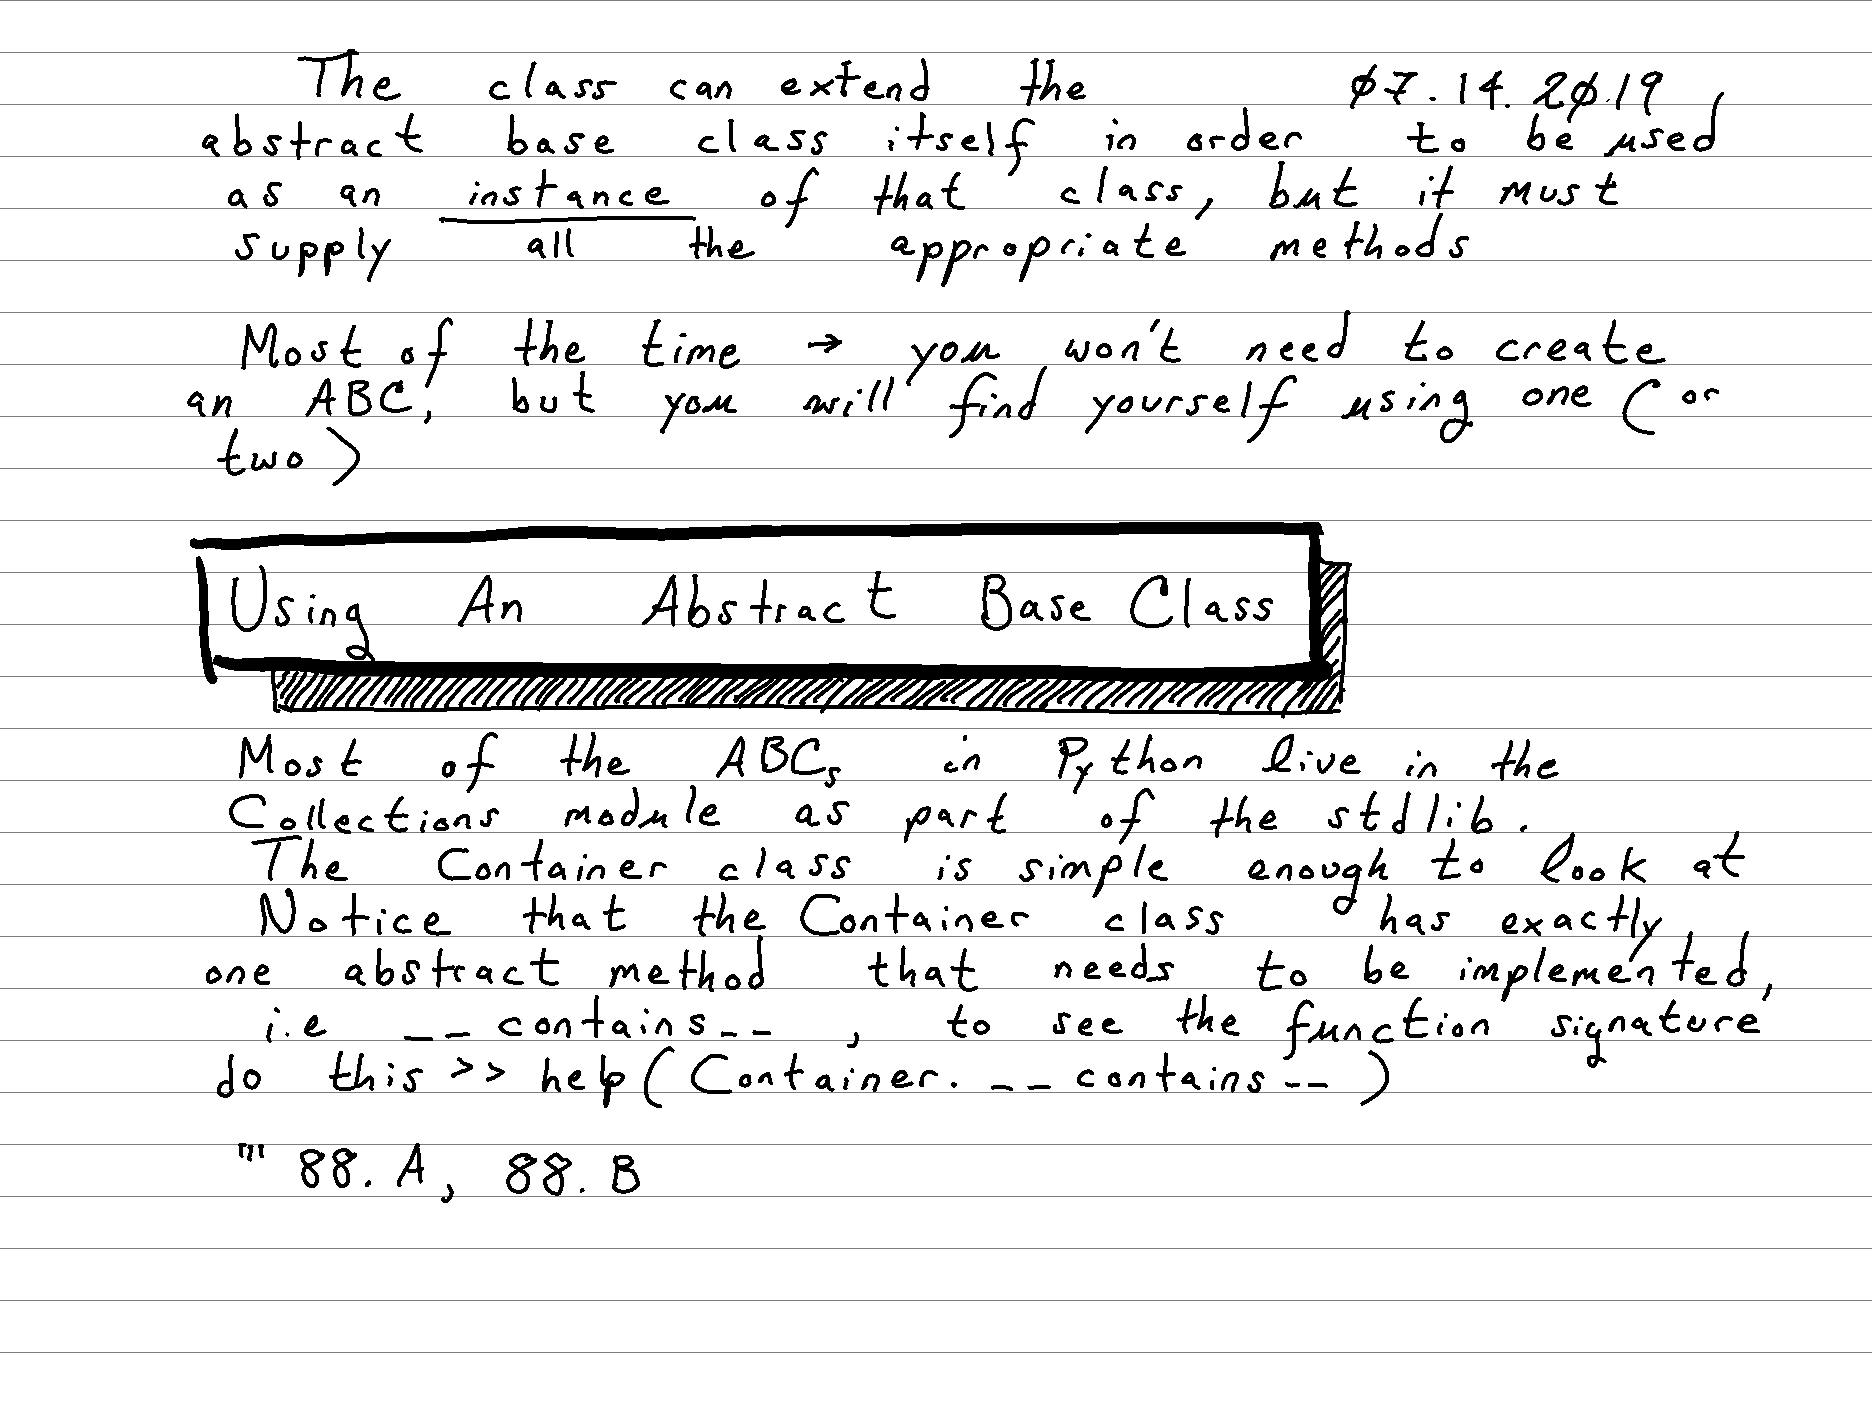 The class can extend the ø7.14.2ø19
abstract base class itself in order to be used
as an instance of that class, but it must
supply all the appropriate methods
Most of the time → you won't need to create
an ABC, but you will find yourself using one (or
two)
Using An Abstract Base Class
Most of the ABCs in Python live in the
Collections module as part of the stdlib.
The Container class is simple enough to look at
Notice that the Container class has exactly
one abstract method that needs to be implemented,
i.e __contains--, to see the function signature
do this >> help(Container.__contains--)
"' 88.A, 88.B